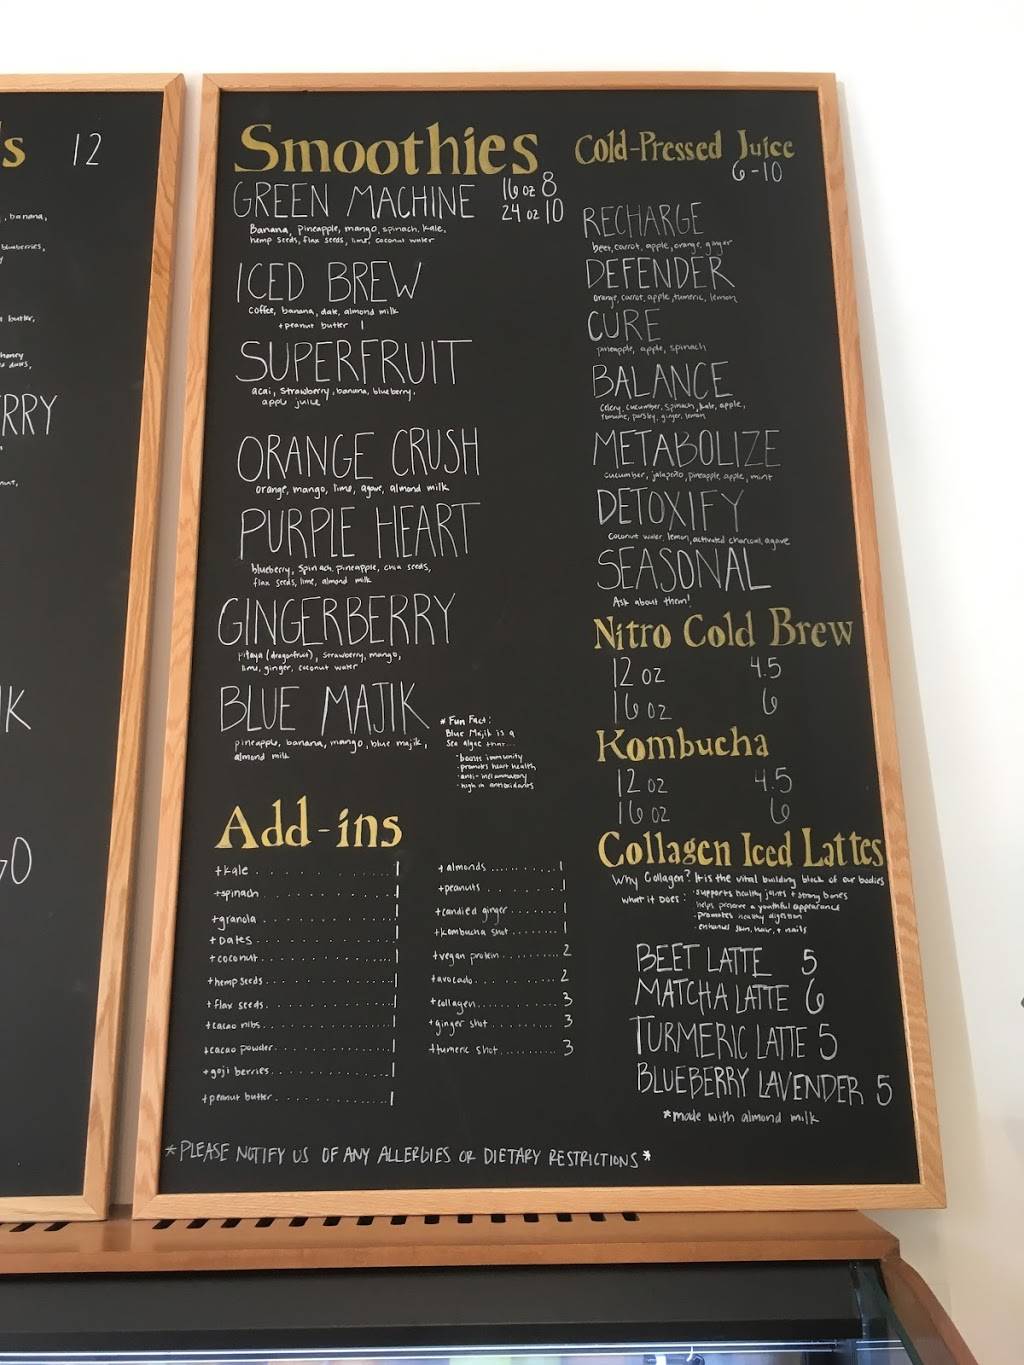 s 12
, banana,
blueberries,
butter,
honey
RRY
IK
GO
Smoothies
GREEN MACHINE 16 oz 8
24 oz 10
Banana, pineapple, mango, spinach, kale,
hemp seeds, flax seeds, lime, coconut water
ICED BREW
coffee, banana, date, almond milk
+peanut butter 1
SUPERFRUIT
acai, strawberry, banana, blueberry,
apple juice
ORANGE CRUSH
orange, mango, lime, agave, almond milk
PURPLE HEART
blueberry, spinach, pineapple, chia seeds,
flax seeds, lime, almond milk
GINGERBERRY
pitaya (dragonfruit), strawberry, mango,
lime, ginger, coconut water
BLUE MAJIK
pineapple, banana, mango, blue majik,
almond milk
* Fun Fact:
Blue Majik is a
sea algae that...
·boosts immunity
·promotes heart health
·anti-inflammatory
·high in antioxidants
Add-ins
+kale 1
+spinach 1
+granola 1
+Dates 1
+coconut 1
+hemp seeds 1
+flax seeds 1
+cacao nibs 1
+cacao powder 1
+goji berries 1
+peanut butter 1
+almonds 1
+peanuts 1
+candied ginger 1
+kombucha shot 1
+vegan protein 2
+avocado 2
+collagen 3
+ginger shot 3
+tumeric shot 3
Cold-Pressed Juice
6-10
RECHARGE
beet, carrot, apple, orange, ginger
DEFENDER
orange, carrot, apple, tumeric, lemon
CURE
pineapple, apple, spinach
BALANCE
celery, cucumber, spinach, kale, apple,
romaine, parsley, ginger, lemon
METABOLIZE
cucumber, jalapeño, pineapple, apple, mint
DETOXIFY
coconut water, lemon, activated charcoal, agave
SEASONAL
Ask about them!
Nitro Cold Brew
12 oz 4.5
16 oz 6
Kombucha
12 oz 4.5
16 oz 6
Collagen Iced Lattes
Why Collagen? It is the vital building block of our bodies
what it does: ·supports healthy joints + strong bones
·helps preserve a youthful appearance
·promotes healthy digestion
·enhances skin, hair, + nails
BEET LATTE 5
MATCHA LATTE 6
TURMERIC LATTE 5
BLUEBERRY LAVENDER 5
*made with almond milk
*PLEASE NOTIFY US OF ANY ALLERGIES OR DIETARY RESTRICTIONS*